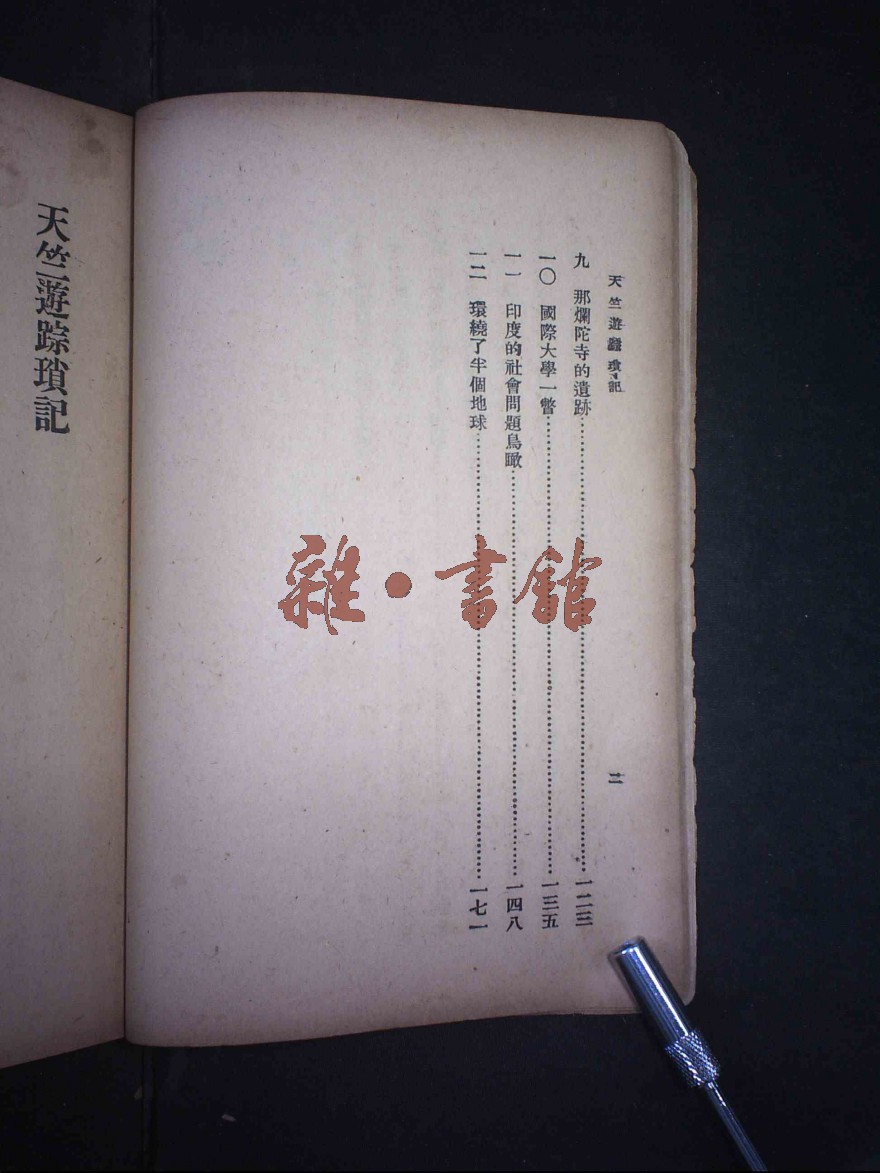 天竺遊踪瑣記
二
九　那爛陀寺的遺跡 一二三
一〇　國際大學一瞥 一三五
一一　印度的社會問題鳥瞰 一四八
一二　環繞了半個地球 一七一
雜・書館
天竺遊踪瑣記